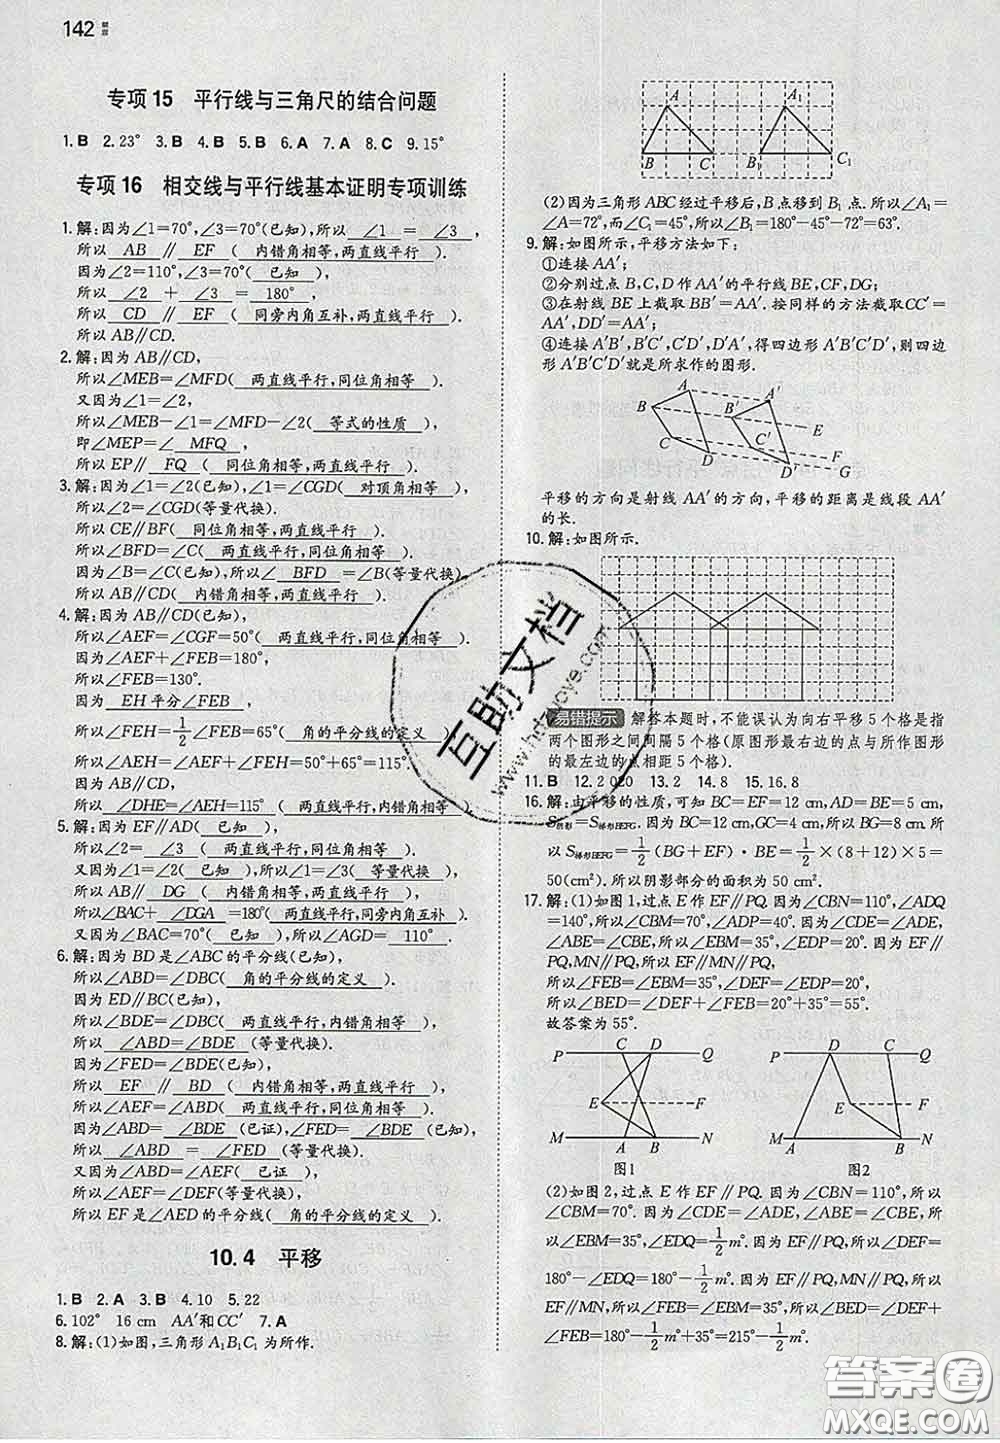 142
专项15 平行线与三角尺的结合问题
1. B 2. 23° 3. B 4. B 5. B 6. A 7. A 8. C 9. 15°
专项16 相交线与平行线基本证明专项训练
1. 解:因为∠1=70°,∠3=70°(已知),所以 ∠1 = ∠3 ,
所以 AB ∥ EF ( 内错角相等,两直线平行 ).
因为∠2=110°,∠3=70°( 已知 ),
所以 ∠2 + ∠3 = 180° ,
所以 CD ∥ EF ( 同旁内角互补,两直线平行 ).
所以 AB∥CD.
2. 解:因为 AB∥CD,
所以∠MEB=∠MFD( 两直线平行,同位角相等 ).
又因为∠1=∠2,
所以∠MEB-∠1=∠MFD-∠2( 等式的性质 ),
即∠MEP=∠ MFQ ,
所以 EP∥ FQ ( 同位角相等,两直线平行 ).
3. 解:因为∠1=∠2(已知),∠1=∠CGD( 对顶角相等 ),
所以∠2=∠CGD(等量代换).
所以 CE∥BF( 同位角相等,两直线平行 ).
所以∠BFD=∠C( 两直线平行,同位角相等 ).
因为∠B=∠C(已知),所以∠ BFD =∠B(等量代换),
所以 AB∥CD( 内错角相等,两直线平行 ).
4. 解:因为 AB∥CD(已知),
所以∠AEF=∠CGF=50°( 两直线平行,同位角相等 ).
因为∠AEF+∠FEB=180°,
所以∠FEB=130°.
因为 EH平分∠FEB ,
所以∠FEH=1/2∠FEB=65°( 角的平分线的定义 ),
所以∠AEF+∠FEH=50°+65°=115°.
因为 AB∥CD,
所以 ∠DHE=∠AEH=115° ( 两直线平行,内错角相等 ).
5. 解:因为 EF∥AD( 已知 ),
所以∠2= ∠3 ( 两直线平行,同位角相等 ).
又因为∠1=∠2( 已知 ),所以∠1=∠3( 等量代换 ),
所以 AB∥ DG ( 内错角相等,两直线平行 ),
所以∠BAC+ ∠DGA =180°( 两直线平行,同旁内角互补 ).
又因为∠BAC=70°( 已知 ),所以∠AGD= 110° .
6. 解:因为 BD 是∠ABC 的平分线(已知),
所以∠ABD=∠DBC( 角的平分线的定义 ).
因为 ED∥BC(已知),
所以∠BDE=∠DBC( 两直线平行,内错角相等 ),
所以 ∠ABD=∠BDE (等量代换).
因为∠FED=∠BDE(已知),
所以 EF ∥ BD ( 内错角相等,两直线平行 ),
所以∠AEF=∠ABD( 两直线平行,同位角相等 ).
因为∠ABD= ∠BDE (已证),∠FED= ∠BDE (已知),
所以 ∠ABD = ∠FED (等量代换).
又因为∠ABD=∠AEF( 已证 ),
所以∠AEF=∠DEF(等量代换),
所以 EF 是∠AED 的平分线( 角的平分线的定义 ).
10.4 平移
1. B 2. A 3. B 4. 10 5. 22
6. 102° 16 cm AA′和CC′ 7. A
8. 解:(1)如图,三角形 A₁B₁C₁ 为所作.
A A₁
B C B₁ C₁
(2)因为三角形 ABC 经过平移后,B 点移到 B₁ 点.所以∠A₁
=∠A=72°,而∠C₁=45°,所以∠B₁=180°-45°-72°=63°.
9. 解:如图所示,平移方法如下:
①连接 AA′;
②分别过点 B,C,D 作 AA′的平行线 BE,CF,DG;
③在射线 BE 上截取 BB′=AA′.按同样的方法截取CC′=
AA′,DD′=AA′.
④连接 A′B′,B′C′,C′D′,D′A′,得四边形 A′B′C′D′,则四边
形 A′B′C′D′就是所求作的图形.
A A′
B B′ E
C C′ F
D D′ G
平移的方向是射线 AA′的方向,平移的距离是线段 AA′
的长.
10. 解:如图所示.
易错提示 解答本题时,不能误认为向右平移 5 个格是指
两个图形之间间隔 5 个格(原图形最右边的点与所作图形
的最左边的点相距 5 个格).
11. B 12. 2 020 13. 2 14. 8 15. 16.8
16. 解:由平移的性质,可知 BC=EF=12 cm,AD=BE=5 cm,
S阴影=S梯形BEFG.因为 BC=12 cm,GC=4 cm,所以 BG=8 cm.所
以 S梯形BEFG=1/2(BG+EF)·BE=1/2×(8+12)×5=
50(cm²).所以阴影部分的面积为 50 cm².
17. 解:(1)如图 1,过点 E 作 EF∥PQ.因为∠CBN=110°,∠ADQ
=140°,所以∠CBM=70°,∠ADP=40°.因为∠CDE=∠ADE,
∠ABE=∠CBE,所以∠EBM=35°,∠EDP=20°.因为 EF∥
PQ,PQ∥MN,所以 EF∥MN∥PQ,
所以∠FEB=∠EBM=35°,∠DEF=∠EDP=20°,
所以∠BED=∠DEF+∠FEB=20°+35°=55°.
故答案为 55°.
P C D Q
E F
M A B N
图1
P D C Q
E F
M A B N
图2
(2)如图 2,过点 E 作 EF∥PQ.因为∠CBN=110°,所以
∠CBM=70°.因为∠CDE=∠ADE,∠ABE=∠CBE,所以
∠EBM=35°,∠EDQ=1/2m°.因为 EF∥PQ,所以∠DEF=
180°-∠EDQ=180°-1/2m°.因为 EF∥PQ,MN∥PQ,所以
EF∥MN,所以∠FEB=∠EBM=35°,所以∠BED=∠DEF+
∠FEB=180°-1/2m°+35°=215°-1/2m°.
互助文档
www.hdzuoye.com
答案圈
MXQE.COM